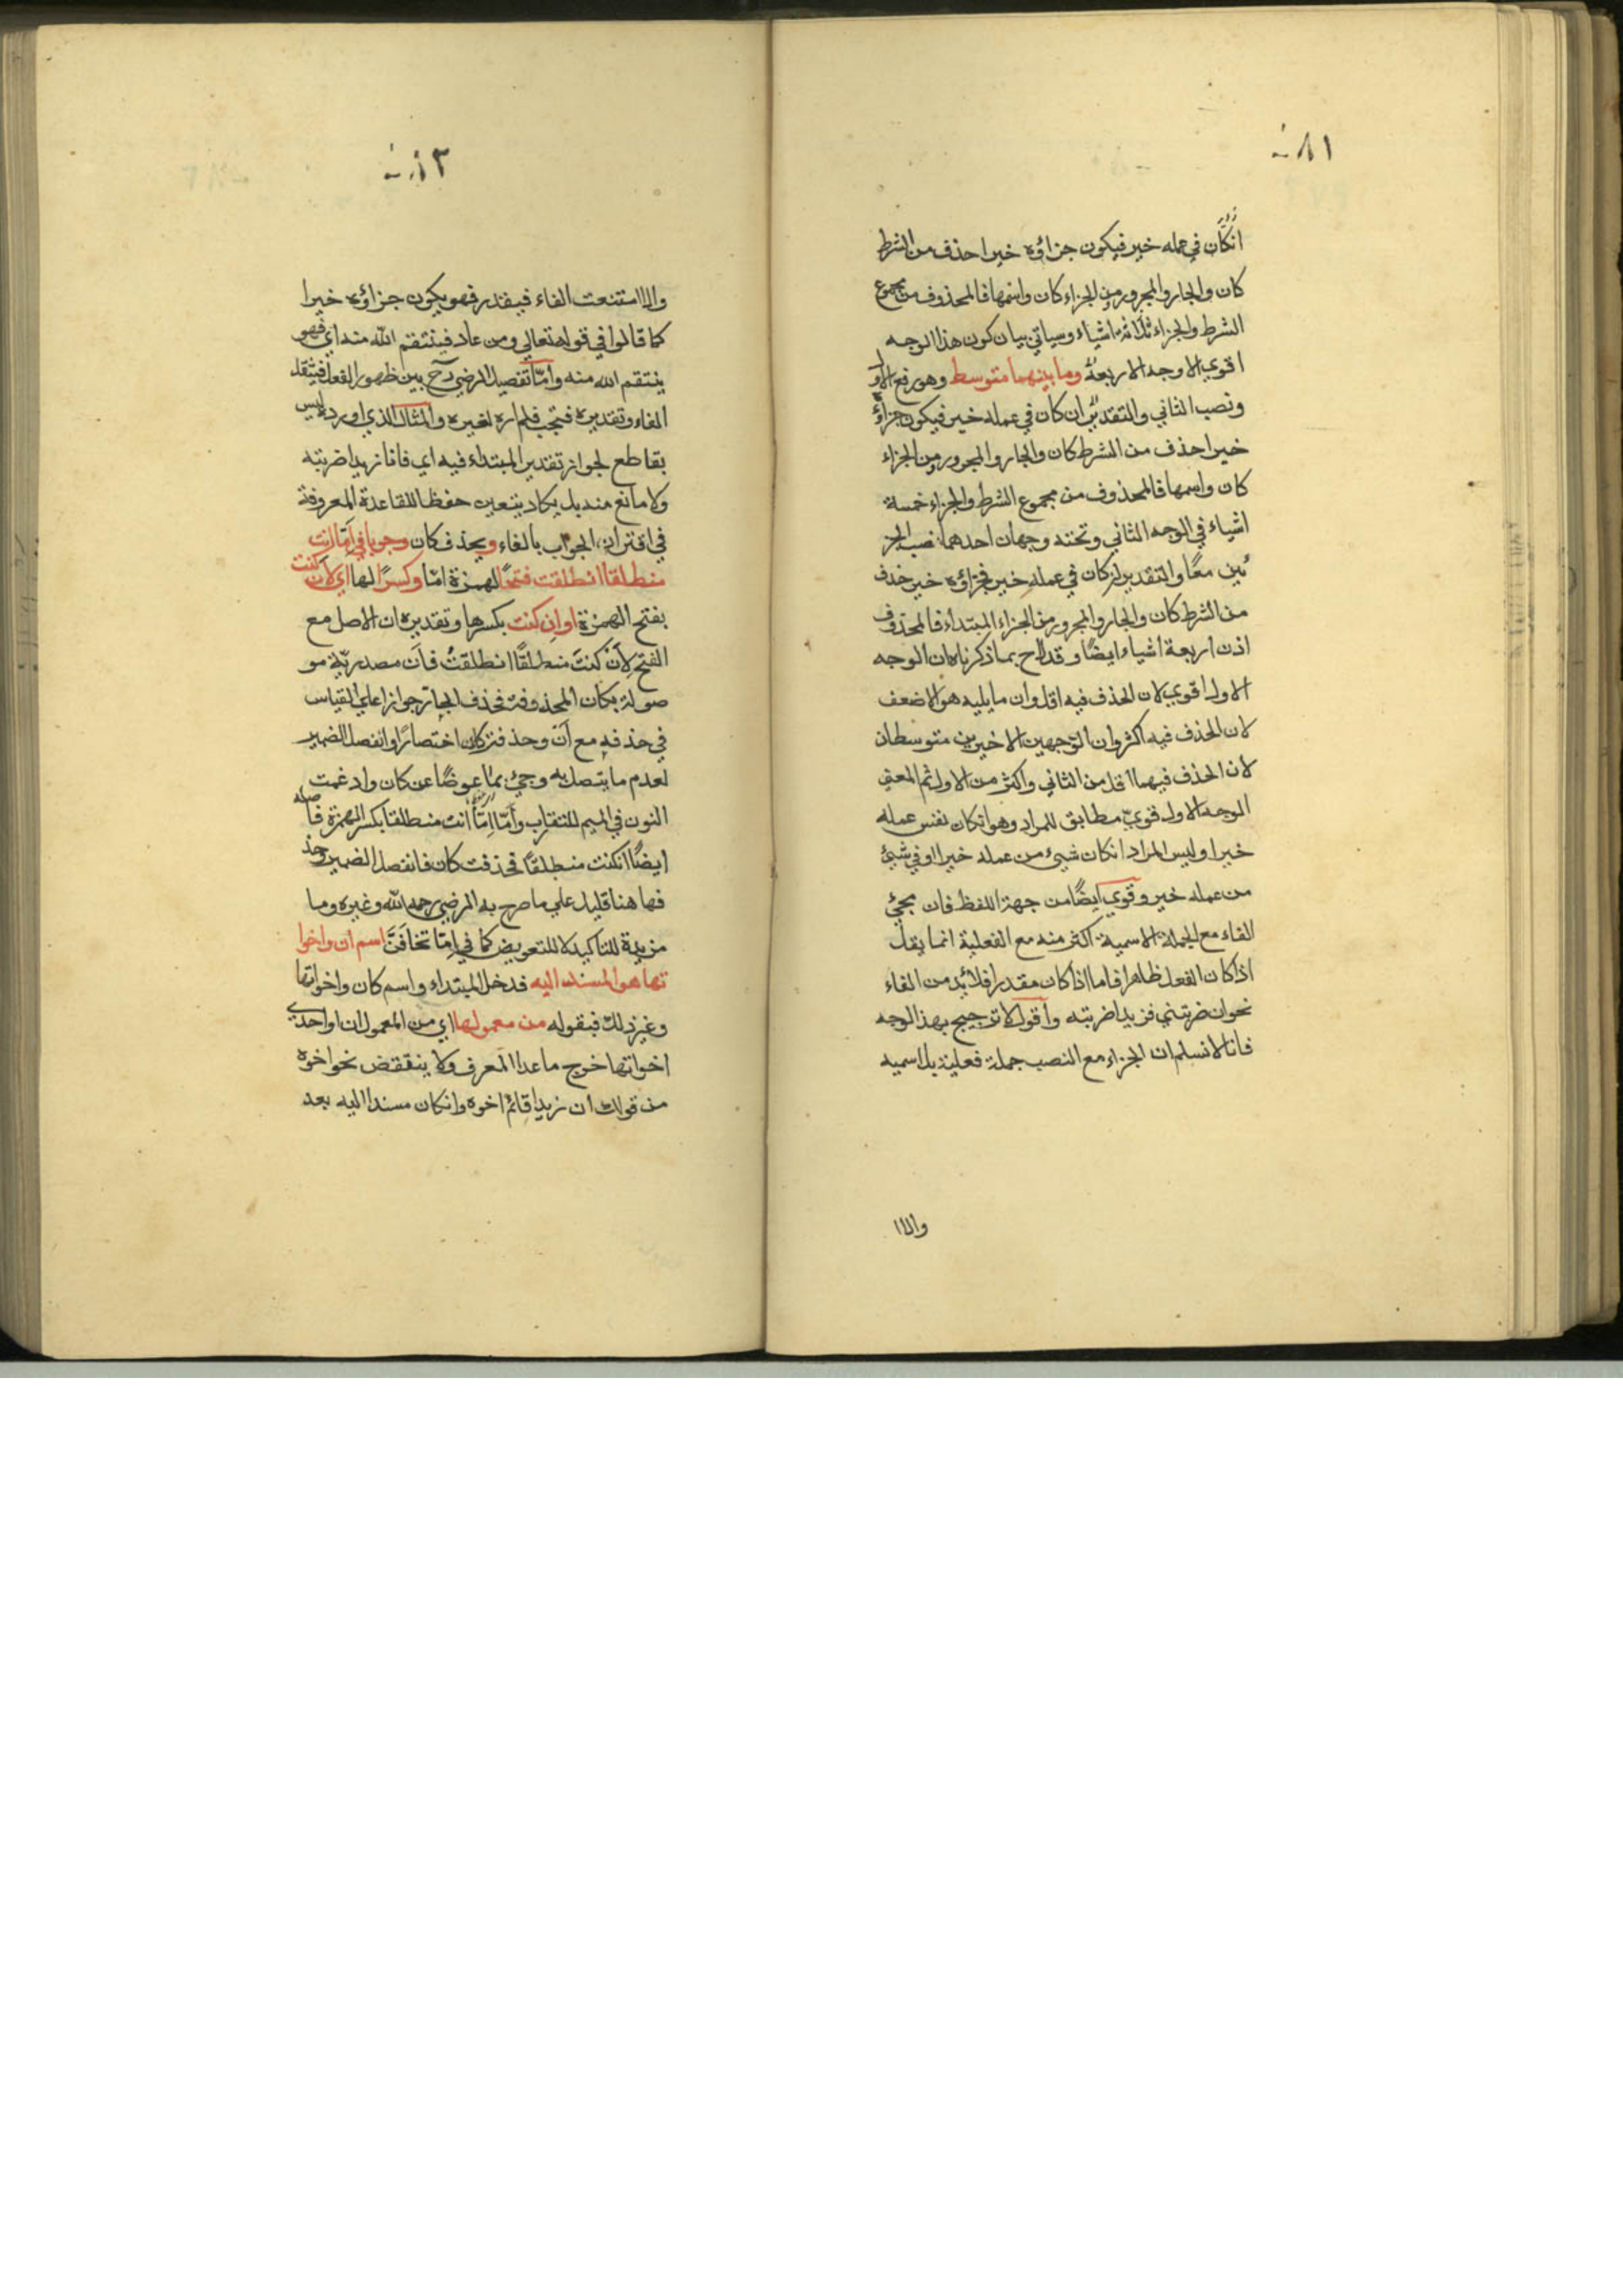 ٨١
انكان في عمله خير فيكون جزاؤه خيرا حذف من الشرط
كان والجار والمجرور ومن الجزاء كان واسمها فالمحذوف من مجموع
الشرط والجزاء ثلاثة اشياء وسياتي بيان كون هذا الوجه
اقوي الاوجه الاربعة وما بينهما متوسط وهو رفع الاول
ونصب الثاني والتقدير ان كان في عمله خير فيكون جزاؤه
خيرا حذف من الشرط كان والجار والمجرور ومن الجزاء
كان واسمها فالمحذوف من مجموع الشرط والجزاء خمسة
اشياء في الوجه الثاني وتحته وجهان احدهما نصب الجز
ئين معًا والتقدير انكان في عمله خير فجزاؤه خير حذف
من الشرط كان والجار والمجرور من الجزاء المبتداء فالمحذوف
اذن اربعة اشياء ايضًا وقد لاح بما ذكرناه ان الوجه
الاول اقوي لان الحذف فيه اقل وان ما يليه هو الاضعف
لان الحذف فيه اكثر وان الوجهين الاخيرين متوسطان
لان الحذف فيهما اقل من الثاني واكثر من الاول ثم المعني
الوجه الاول قويّ مطابق للمراد وهو انكان نفس عمله
خيرا وليس المراد انكان شيئ من عمله خيرا او في شيئ
من عمله خير وقوي ايضًا من جهة اللفظ فان مجيئ
الفاء مع الجملة الاسمية اكثر منه مع الفعلية انما يقل
اذا كان الفعل ظاهرا فاما اذا كان مقدرا فلا بُد من الفاء
نحو ان ضربتني فزيدا ضربته وأقول لا ترجيح بهذا الوجه
فانا لا نسلم ان الجزاء مع النصب جملة فعلية بل اسميه
والا ا
والا امتنعت الفاء فيقدر فهو يكون جزاؤه خيرا
كما قالوا في قوله تعالي ومن عاد فينتقم الله منه اي فهو
ينتقم الله منه وأمّا تفصيل الرضي رح بين ظهور الفعل فيقل
الفاء وتقديره فتجب فلم اره لغيره والمثال الذي اورده ليس
بقاطع لجواز تقدير المبتداء فيه اي فانا زيدا ضربته
ولا مانع منه بل يكاد يتعين حفظا للقاعدة المعروفة
في اقتران الجواب بالفاء ويحذف كان وجوبا في امّا انت
منطلقا انطلقت فتحًا لهمزة امّا وكسرًا لها اي لان كنت
بفتح الهمزة او ان كنت بكسرها وتقديره ان الاصل مع
الفتح لِأَنْ كنتَ منطلقًا انطلقتُ فأَن مصدريّة مو
صولة بكان المحذوفة فحذف الجار جوازا علي القياس
في حذفه مع أنّ وحذفت كان اختصارًا وانفصل الضمير
لعدم ما يتصل به وجيئ بما عوضًا عن كان وادغمت
النون في الميم للتقارب وأَمّا اِمّا انت منطلقا بكسر الهمزة فاصله
ايضًا انكنت منطلقًا فحذفت كان فانفصل الضمير وحذ
فها هنا قليل علي ما صرح به الرضي رحمه الله وغيره وما
مزيدة للتاكيد لا للتعويض كما في اِمّا تخافَنَّ اسم ان واخوا
تها هو المسند اليه فدخل المبتداء واسم كان واخواتها
وغير ذلك فبقوله من معمولها اي من المعمول ان او احدي
اخواتها خرج ما عدا المعرف ولا ينتقض نحو اخوه
من قولك ان زيدا قائم اخوه وانكان مسندا اليه بعد